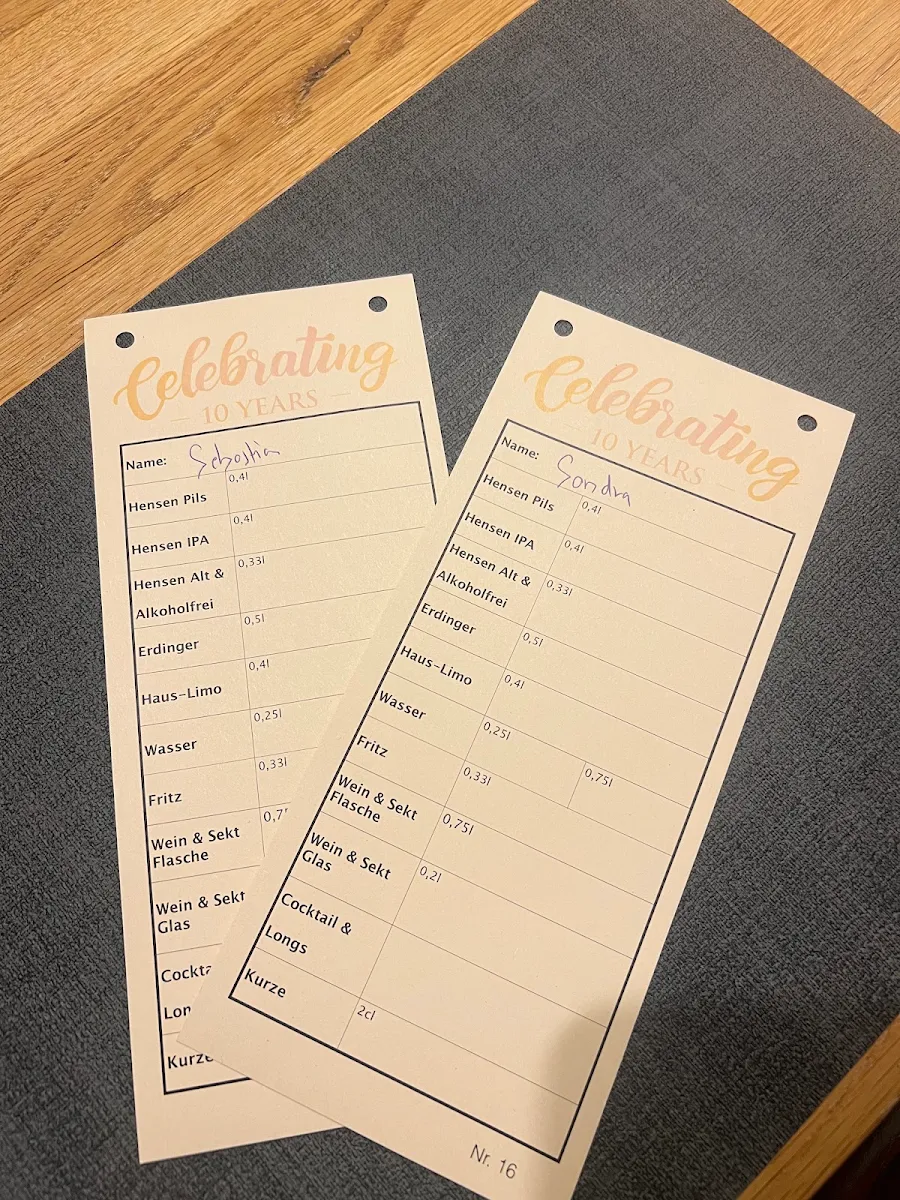 Celebrating
10 YEARS
Name: Sebastian
Hensen Pils 0,4l
Hensen IPA 0,4l
Hensen Alt & 0,33l
Alkoholfrei
Erdinger 0,5l
Haus-Limo 0,4l
Wasser 0,25l
Fritz 0,33l
Wein & Sekt 0,7
Flasche
Wein & Sekt
Glas
Cockta
Lon
Kurze
Celebrating
10 YEARS
Name: Sondra
Hensen Pils 0,4l
Hensen IPA 0,4l
Hensen Alt & 0,33l
Alkoholfrei
Erdinger 0,5l
Haus-Limo 0,4l
Wasser 0,25l 0,75l
Fritz 0,33l
Wein & Sekt 0,75l
Flasche
Wein & Sekt 0,2l
Glas
Cocktail &
Longs
Kurze 2cl
Nr. 16